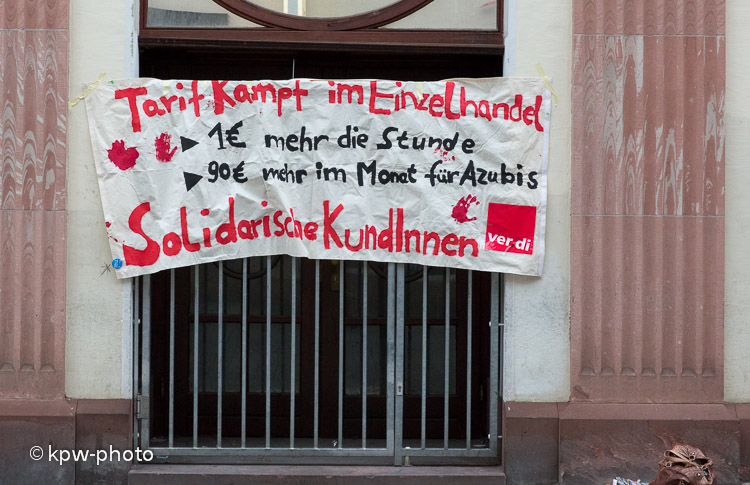 Tarif Kampf im Einzelhandel
1€ mehr die Stunde
90€ mehr im Monat für Azubis
Solidarische KundInnen
ver.di
© kpw-photo